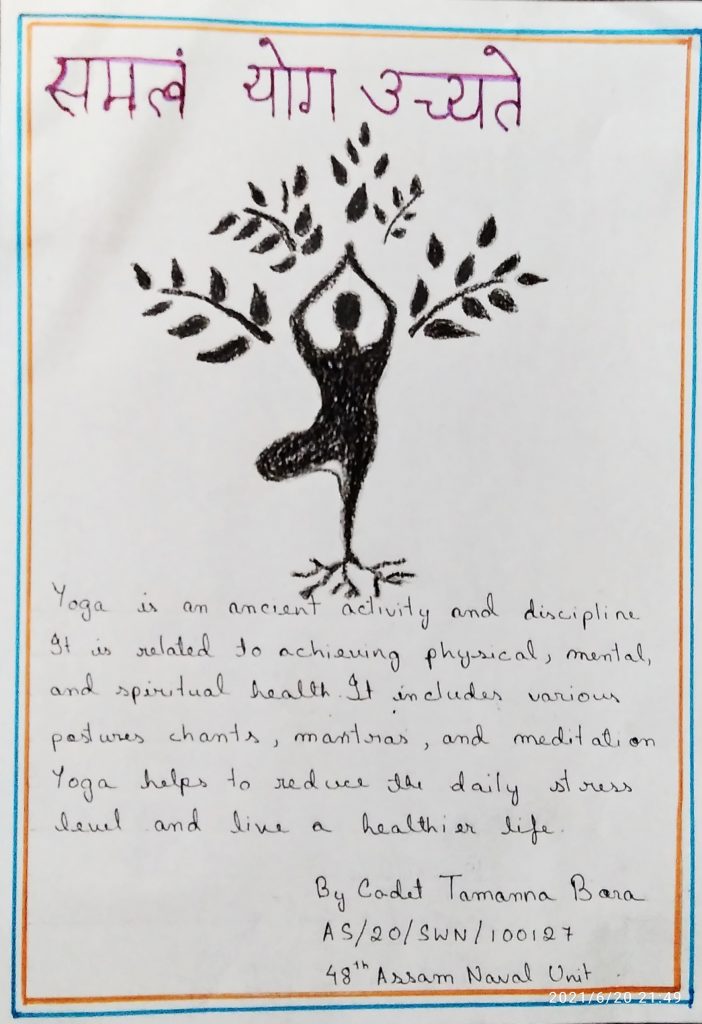 समत्वं योग उच्यते
Yoga is an ancient activity and discipline
It is related to achieving physical, mental,
and spiritual health. It includes various
postures chants, mantras, and meditation
Yoga helps to reduce the daily stress
level and live a healthier life.
By Cadet Tamanna Bora
AS/20/SWN/100127
48th Assam Naval Unit.
2021/6/20 21:49